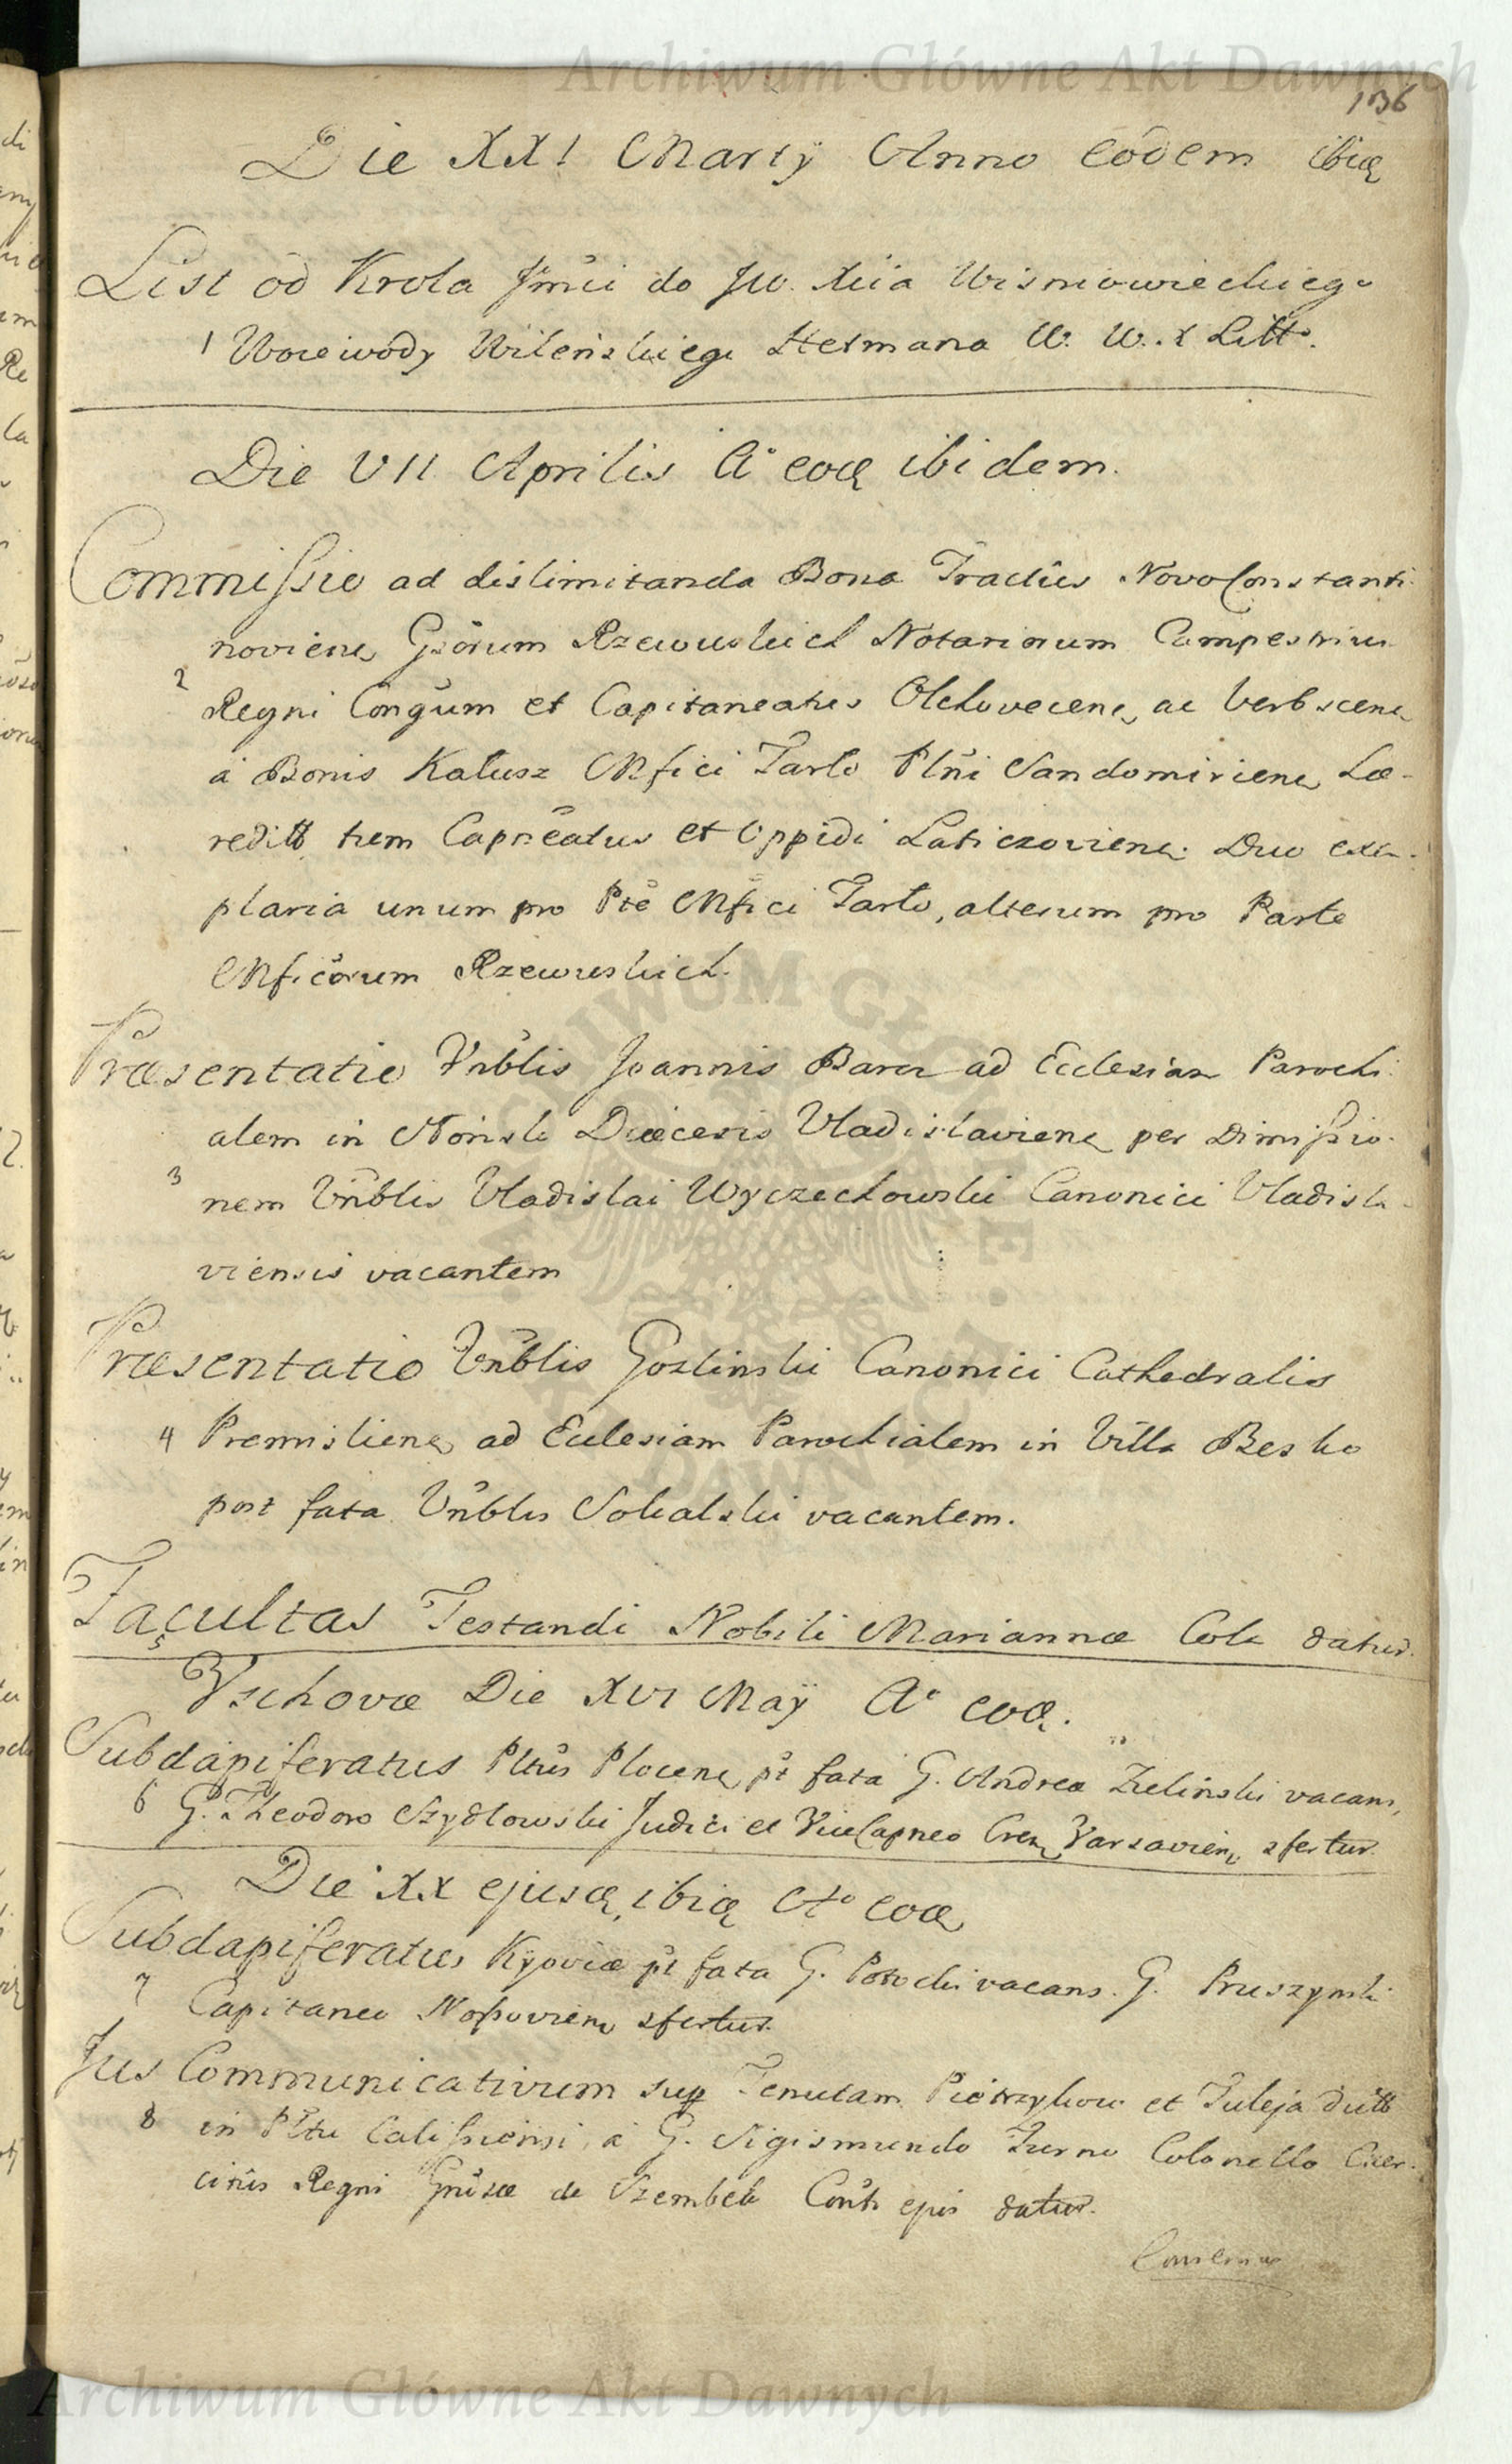 Archiwum Główne Akt Dawnych
136
Die XXI Martÿ Anno eodem ibiq
List od Krola Jmci do JW. Xcia Wisniowieckiego
1 Woiewody Wilenskiego Hetmana W. W. X Litto.
Die VII Aprilis Ao eoq ibidem.
Commissio ad dislimitanda Bona Tractus NovoConstanti
noviens Gsorum Rzewuskich Notariorum Campestrium
2
Regni Congum et Capitaneatus Olchovecens ac Verbscens
a Bonis Kalusz Mfici Tarlo Pltni Sandomiriens hæ-
reditt tum Capneatus et Oppidi Laticzoviens. Duo exem-
plaria unum pro Pte Mfici Tarlo, alterum pro Parte
Mficorum Rzewuskich.
Præsentatio Vnblis Joannis Barcz ad Ecclesiam Parochi
alem in Diæcesis Vladislaviens per Dimissio-
3 nem Vnblis Vladislai Wyczechowski Canonici Vladisla-
viensis vacantem
Præsentatio Vnblis Gozlinski Canonici Cathedralis
4 Premisliens ad Ecclesiam Parochialem in Villa Besko
post fata Vnblis Sokalski vacantem.
Facultas Testandi Nobili Mariannæ datur.
5
Vschovæ Die XVI Maÿ Ao eoq.
Subdapiferatus Pltus Plocens pt fata G. Andreæ Zielinski vacans,
6 G. Theodoro Szydlowski Judici et ViceCapneo Cren Varsaviens sfertur.
Die XX ejusq, ibiq Ao eoq
Subdapiferatus Kijoviæ pt fata G. Potocki vacans. G. Pruszynski
7 Capitaneo Nossoviens sfertur.
Jus Communicativum sup Tenutam et Tuleja dictt
8 in Pltu Calissiensi, a G. Sigismundo Zurno Colonello Exer-
citus Regni Gnosæ de Szembek Conti ejus datur.
Archiwum Główne Akt Dawnych